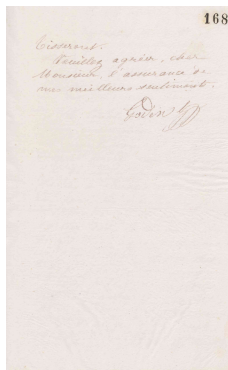 168
Tisserant.
Veuillez agréer, cher
Monsieur, l'assurance de
mes meilleurs sentiments.
Godin